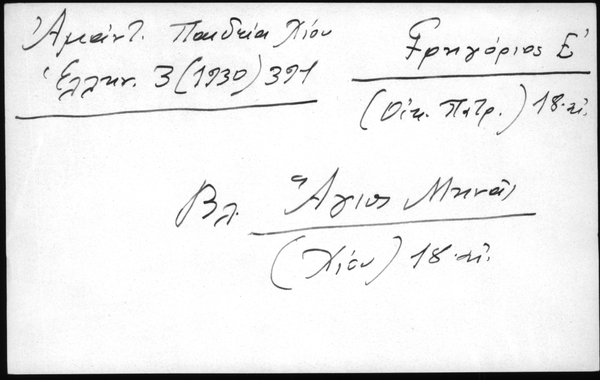 Ἀμάντ. Παιδεία Χίου
Ἑλλην. 3 (1930) 391
Γρηγόριος Ε'
(Οἰκ. Πατρ.) 18. αἰ.
Βλ. Ἅγιος Μηνᾶς
(Χίου) 18. αἰ.